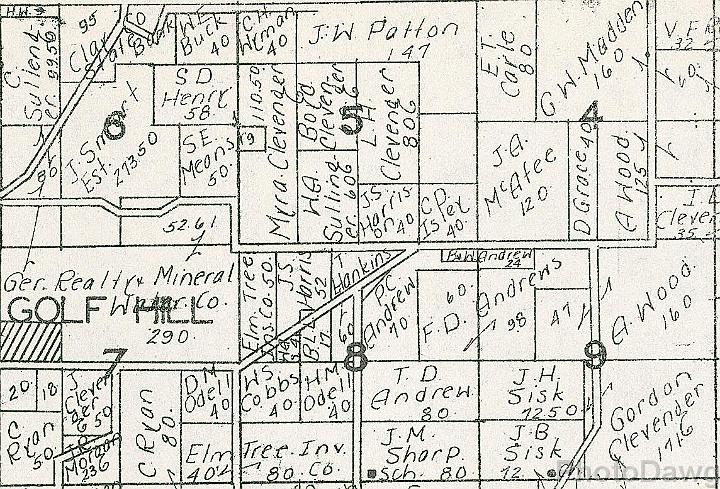 H.W.
95
C.
Sullenger
99.50
Clar
State
Bank
W.E.
Buck
40
C.H.
Wyman
40
J.W Patton
147
E.T.
Carle
80
G W. Madden
160
4
6
J. Smart
Est.
213.50
S D
Henry
58
S.E.
Means
50
110.50
19
Myra Clevenger
Boyd
Clevenger
5
L H
Clevenger
80 6
W.A.
Sullinger
60 6
J S
Harrison
40
C D
Isley
40
J.A.
McAfee
120
D Grace 40
A Wood
125
86
52.61
Ger. Realty & Mineral
Water Co.
290
GOLF HILL
7
Elm Tree
Ins Co. 50
J.S.
Harris
52
B.L.
17
J
Hankins
60
8
P C
Andrew
70
B & W Andrew
24
60
F.D. Andrews
98
47
9
A. Wood
160
20
18
C
Ryan
50
J.
Clevenger
50
J.R.
Morgan
236
C Ryan
80
D M
Odell
40
Elm Tree Inv. Co.
40
80
W S
Cobbs
40
H M
Odell
40
T. D
Andrew
80
J. M.
Sharp
sch. 80
J. H.
Sisk
1250
J. B
Sisk
12
Gordon
Clevenger
171 6
PhotoDawg